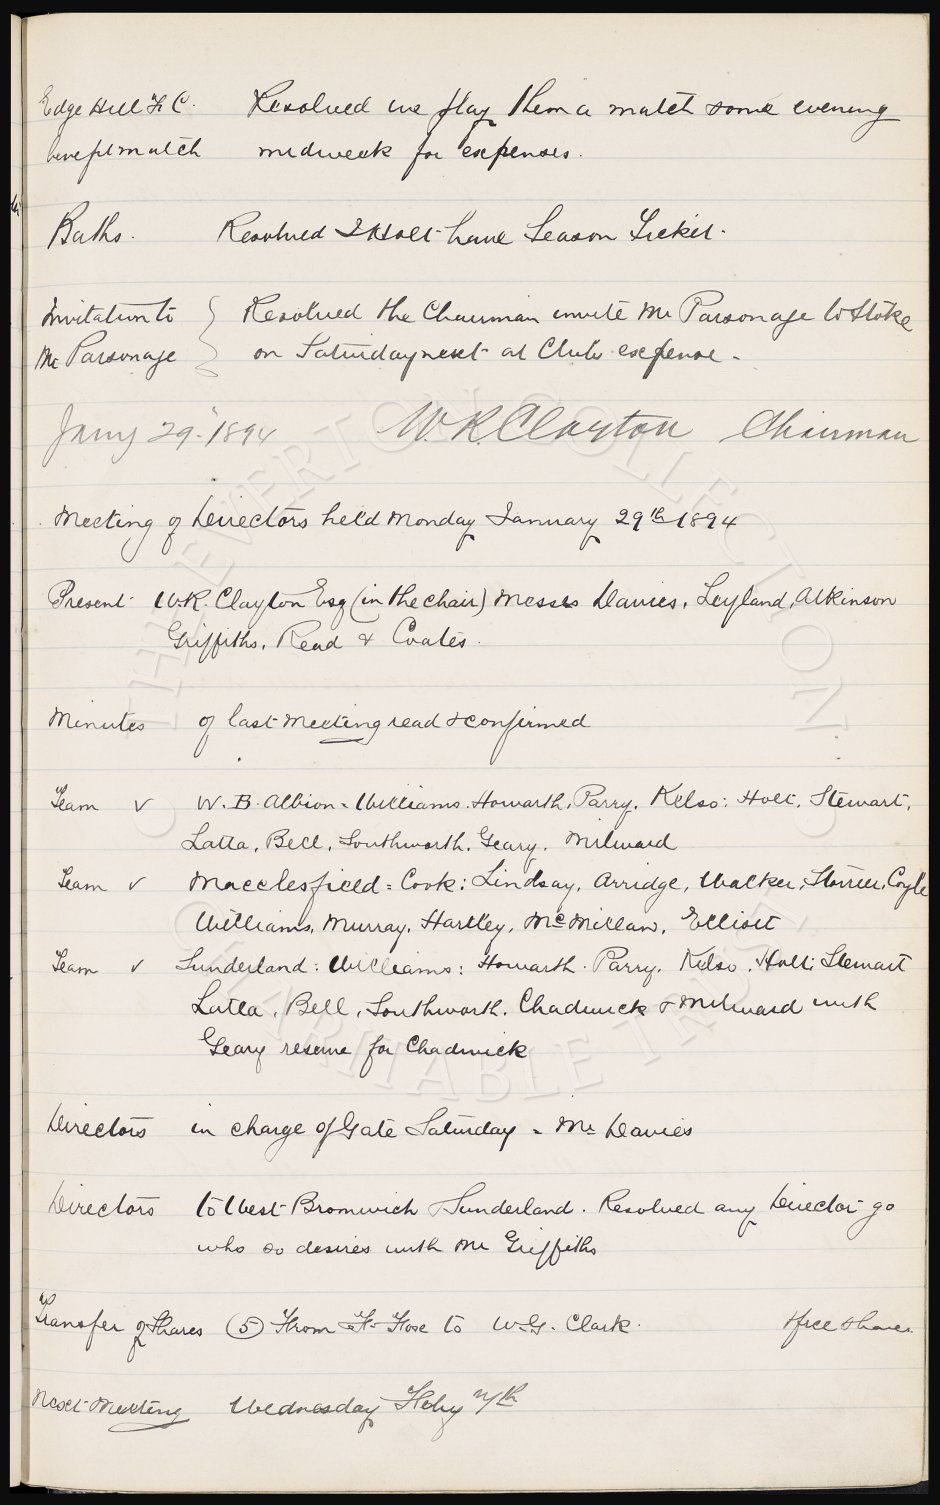 Edge Hill F C. Resolved we play them a match some evening
benefit match midweek for expenses.
Baths. Resolved J Holt have Season Ticket.
Invitation to Resolved the Chairman invite Mr Parsonage to Stoke
Mr Parsonage on Saturday next at Clubs expense.
Jany 29. 1894 W.R. Clayton Chairman
Meeting of Directors held Monday January 29th 1894
Present W.R. Clayton Esq (in the chair) Messrs Davies, Leyland, Atkinson
Griffiths, Read & Coates.
Minutes of last meeting read & confirmed
Team v W. B. Albion = Williams. Howarth, Parry, Kelso: Holt, Stewart,
Latta, Bell, Southworth, Geary, Milward
Team v Macclesfield = Cook: Lindsay, Arridge, Walker, Storrier, Coyle
Williams, Murray, Hartley, McMillan, Elliott
Team v Sunderland: Williams: Howarth. Parry, Kelso, Holt: Stewart
Latta, Bell, Southworth, Chadwick & Milward with
Geary reserve for Chadwick
Directors in charge of Gate Saturday = Mr Davies
Directors to West Bromwich & Sunderland. Resolved any Director go
who so desires with Mr Griffiths
Transfer of Shares (5) From F. Fose to W.G. Clark. free shares
Next Meeting Wednesday Feby
THE EVERTON COLLECTION
CHARITABLE TRUST